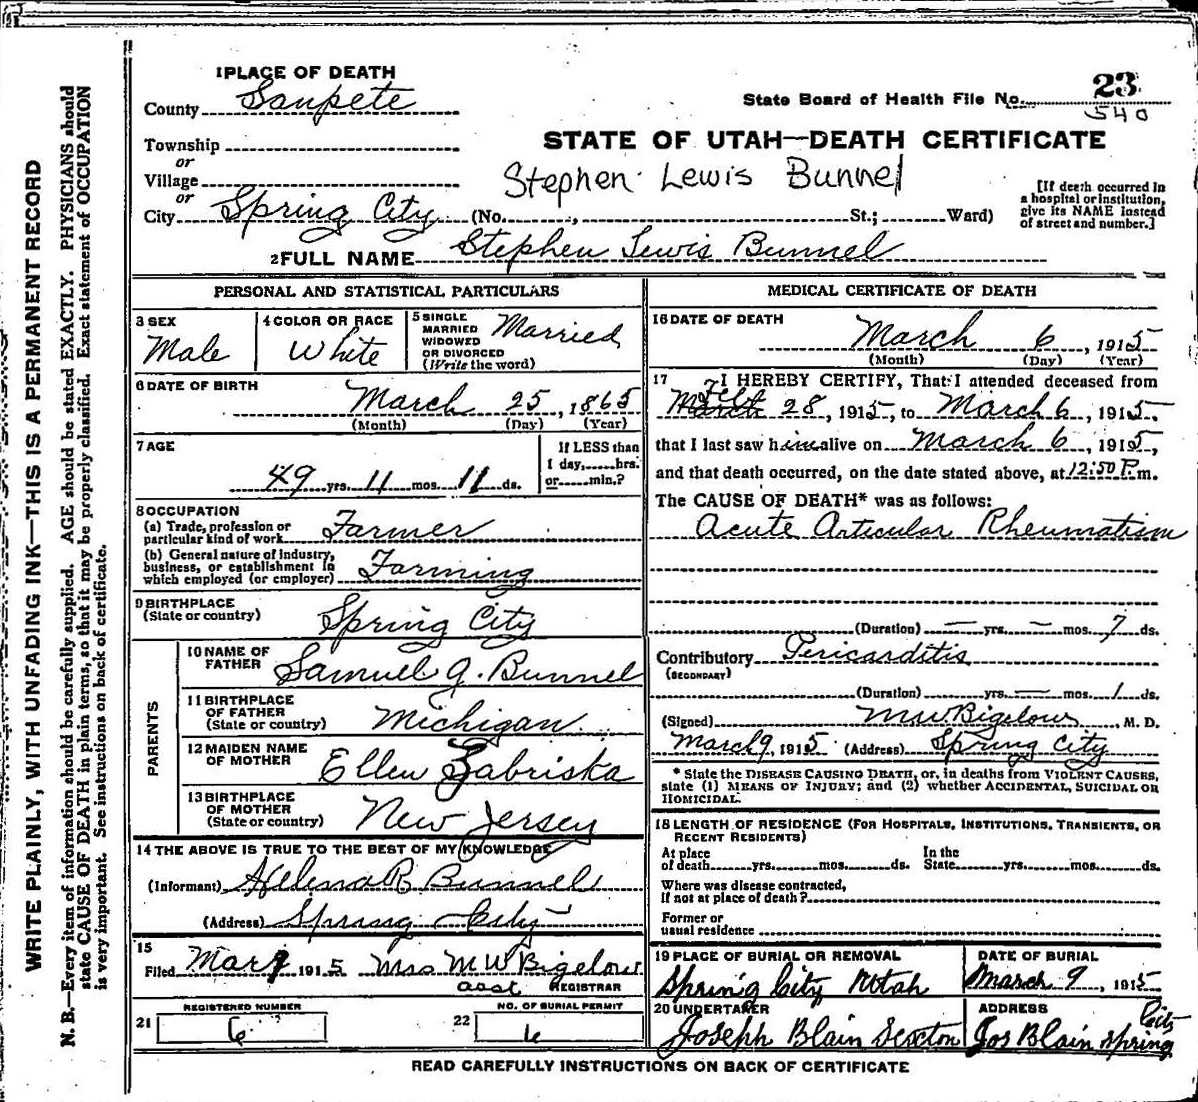 WRITE PLAINLY, WITH UNFADING INK—THIS IS A PERMANENT RECORD
N. B.—Every item of information should be carefully supplied. AGE should be stated EXACTLY. PHYSICIANS should
state CAUSE OF DEATH in plain terms, so that it may be properly classified. Exact statement of OCCUPATION
is very important. See instructions on back of certificate.
1 PLACE OF DEATH
County Sanpete
Township
or
Village
or
City Spring City (No. , St.; Ward)
State Board of Health File No. 23
540
STATE OF UTAH—DEATH CERTIFICATE
Stephen Lewis Bunnel
[If death occurred in
a hospital or institution,
give its NAME instead
of street and number.]
2 FULL NAME Stephen Lewis Bunnel
PERSONAL AND STATISTICAL PARTICULARS
3 SEX
Male
4 COLOR OR RACE
White
5 SINGLE
MARRIED
WIDOWED
OR DIVORCED
(Write the word)
Married
6 DATE OF BIRTH
March 25, 1865
(Month) (Day) (Year)
7 AGE
49 yrs. 11 mos. 11 ds.
If LESS than
1 day, hrs.
or min.?
8 OCCUPATION
(a) Trade, profession or
particular kind of work Farmer
(b) General nature of industry,
business, or establishment in
which employed (or employer) Farming
9 BIRTHPLACE
(State or country) Spring City
PARENTS
10 NAME OF
FATHER Samuel G. Bunnel
11 BIRTHPLACE
OF FATHER
(State or country) Michigan
12 MAIDEN NAME
OF MOTHER Ellen Zabriska
13 BIRTHPLACE
OF MOTHER
(State or country) New Jersey
14 THE ABOVE IS TRUE TO THE BEST OF MY KNOWLEDGE
(Informant) Helena R Bunnel
(Address) Spring City
15
Filed Mar 9 1915 Mrs M W Bigelow
asst REGISTRAR
REGISTERED NUMBER
21 6
NO. OF BURIAL PERMIT
22 6
MEDICAL CERTIFICATE OF DEATH
16 DATE OF DEATH
March 6, 1915
(Month) (Day) (Year)
17 I HEREBY CERTIFY, That I attended deceased from
Feb
March 28, 1915, to March 6, 1915,
that I last saw him alive on March 6, 1915,
and that death occurred, on the date stated above, at 12:50 P.m.
The CAUSE OF DEATH* was as follows:
Acute Articular Rheumatism
(Duration) — yrs. — mos. 7 ds.
Contributory Pericarditis
(SECONDARY)
(Duration) yrs. — mos. 1 ds.
(Signed) M W Bigelow, M. D.
March 9, 1915 (Address) Spring City
* State the DISEASE CAUSING DEATH, or, in deaths from VIOLENT CAUSES,
state (1) MEANS OF INJURY; and (2) whether ACCIDENTAL, SUICIDAL OR
HOMICIDAL.
18 LENGTH OF RESIDENCE (FOR HOSPITALS, INSTITUTIONS, TRANSIENTS, OR
RECENT RESIDENTS)
At place In the
of death yrs. mos. ds. State yrs. mos. ds.
Where was disease contracted,
if not at place of death?
Former or
usual residence
19 PLACE OF BURIAL OR REMOVAL
Spring City Utah
DATE OF BURIAL
March 9, 1915
20 UNDERTAKER
Joseph Blain Sexton
ADDRESS
City
Jos Blain Spring
READ CAREFULLY INSTRUCTIONS ON BACK OF CERTIFICATE